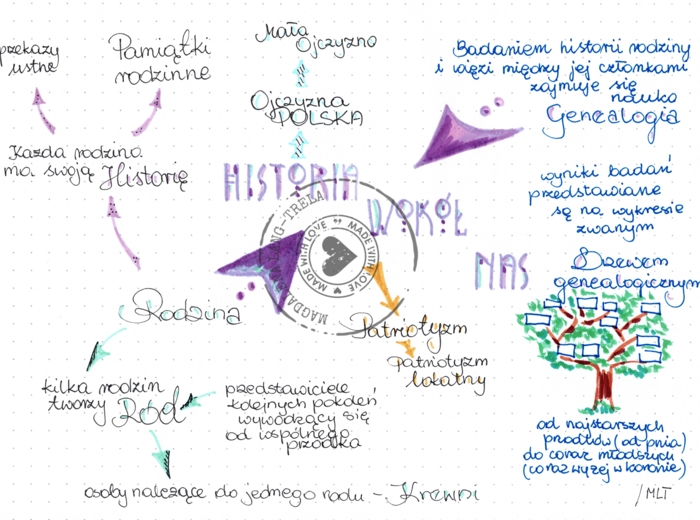 przekazy
ustne
Pamiątki
rodzinne
Mała
Ojczyzna
Ojczyzna
POLSKA
Każda rodzina
ma swoją Historię
HISTORIA
WOKÓŁ
NAS
Badaniem historii rodziny
i więzi między jej członkami
zajmuje się
nauka
Genealogia
wyniki badań
przedstawiane
są na wykresie
zwanym
Drzewem
genealogicznym
MADE WITH LOVE
MADE WITH LOVE
Rodzina
Patriotyzm
Patriotyzm
lokalny
kilka rodzin
tworzy Ród
przedstawiciele
kolejnych pokoleń
wywodzący się
od wspólnego
przodka
osoby należące do jednego rodu - Krewni
od najstarszych
przodków (od pnia)
do coraz młodszych
(coraz wyżej w koronie)
/MLT